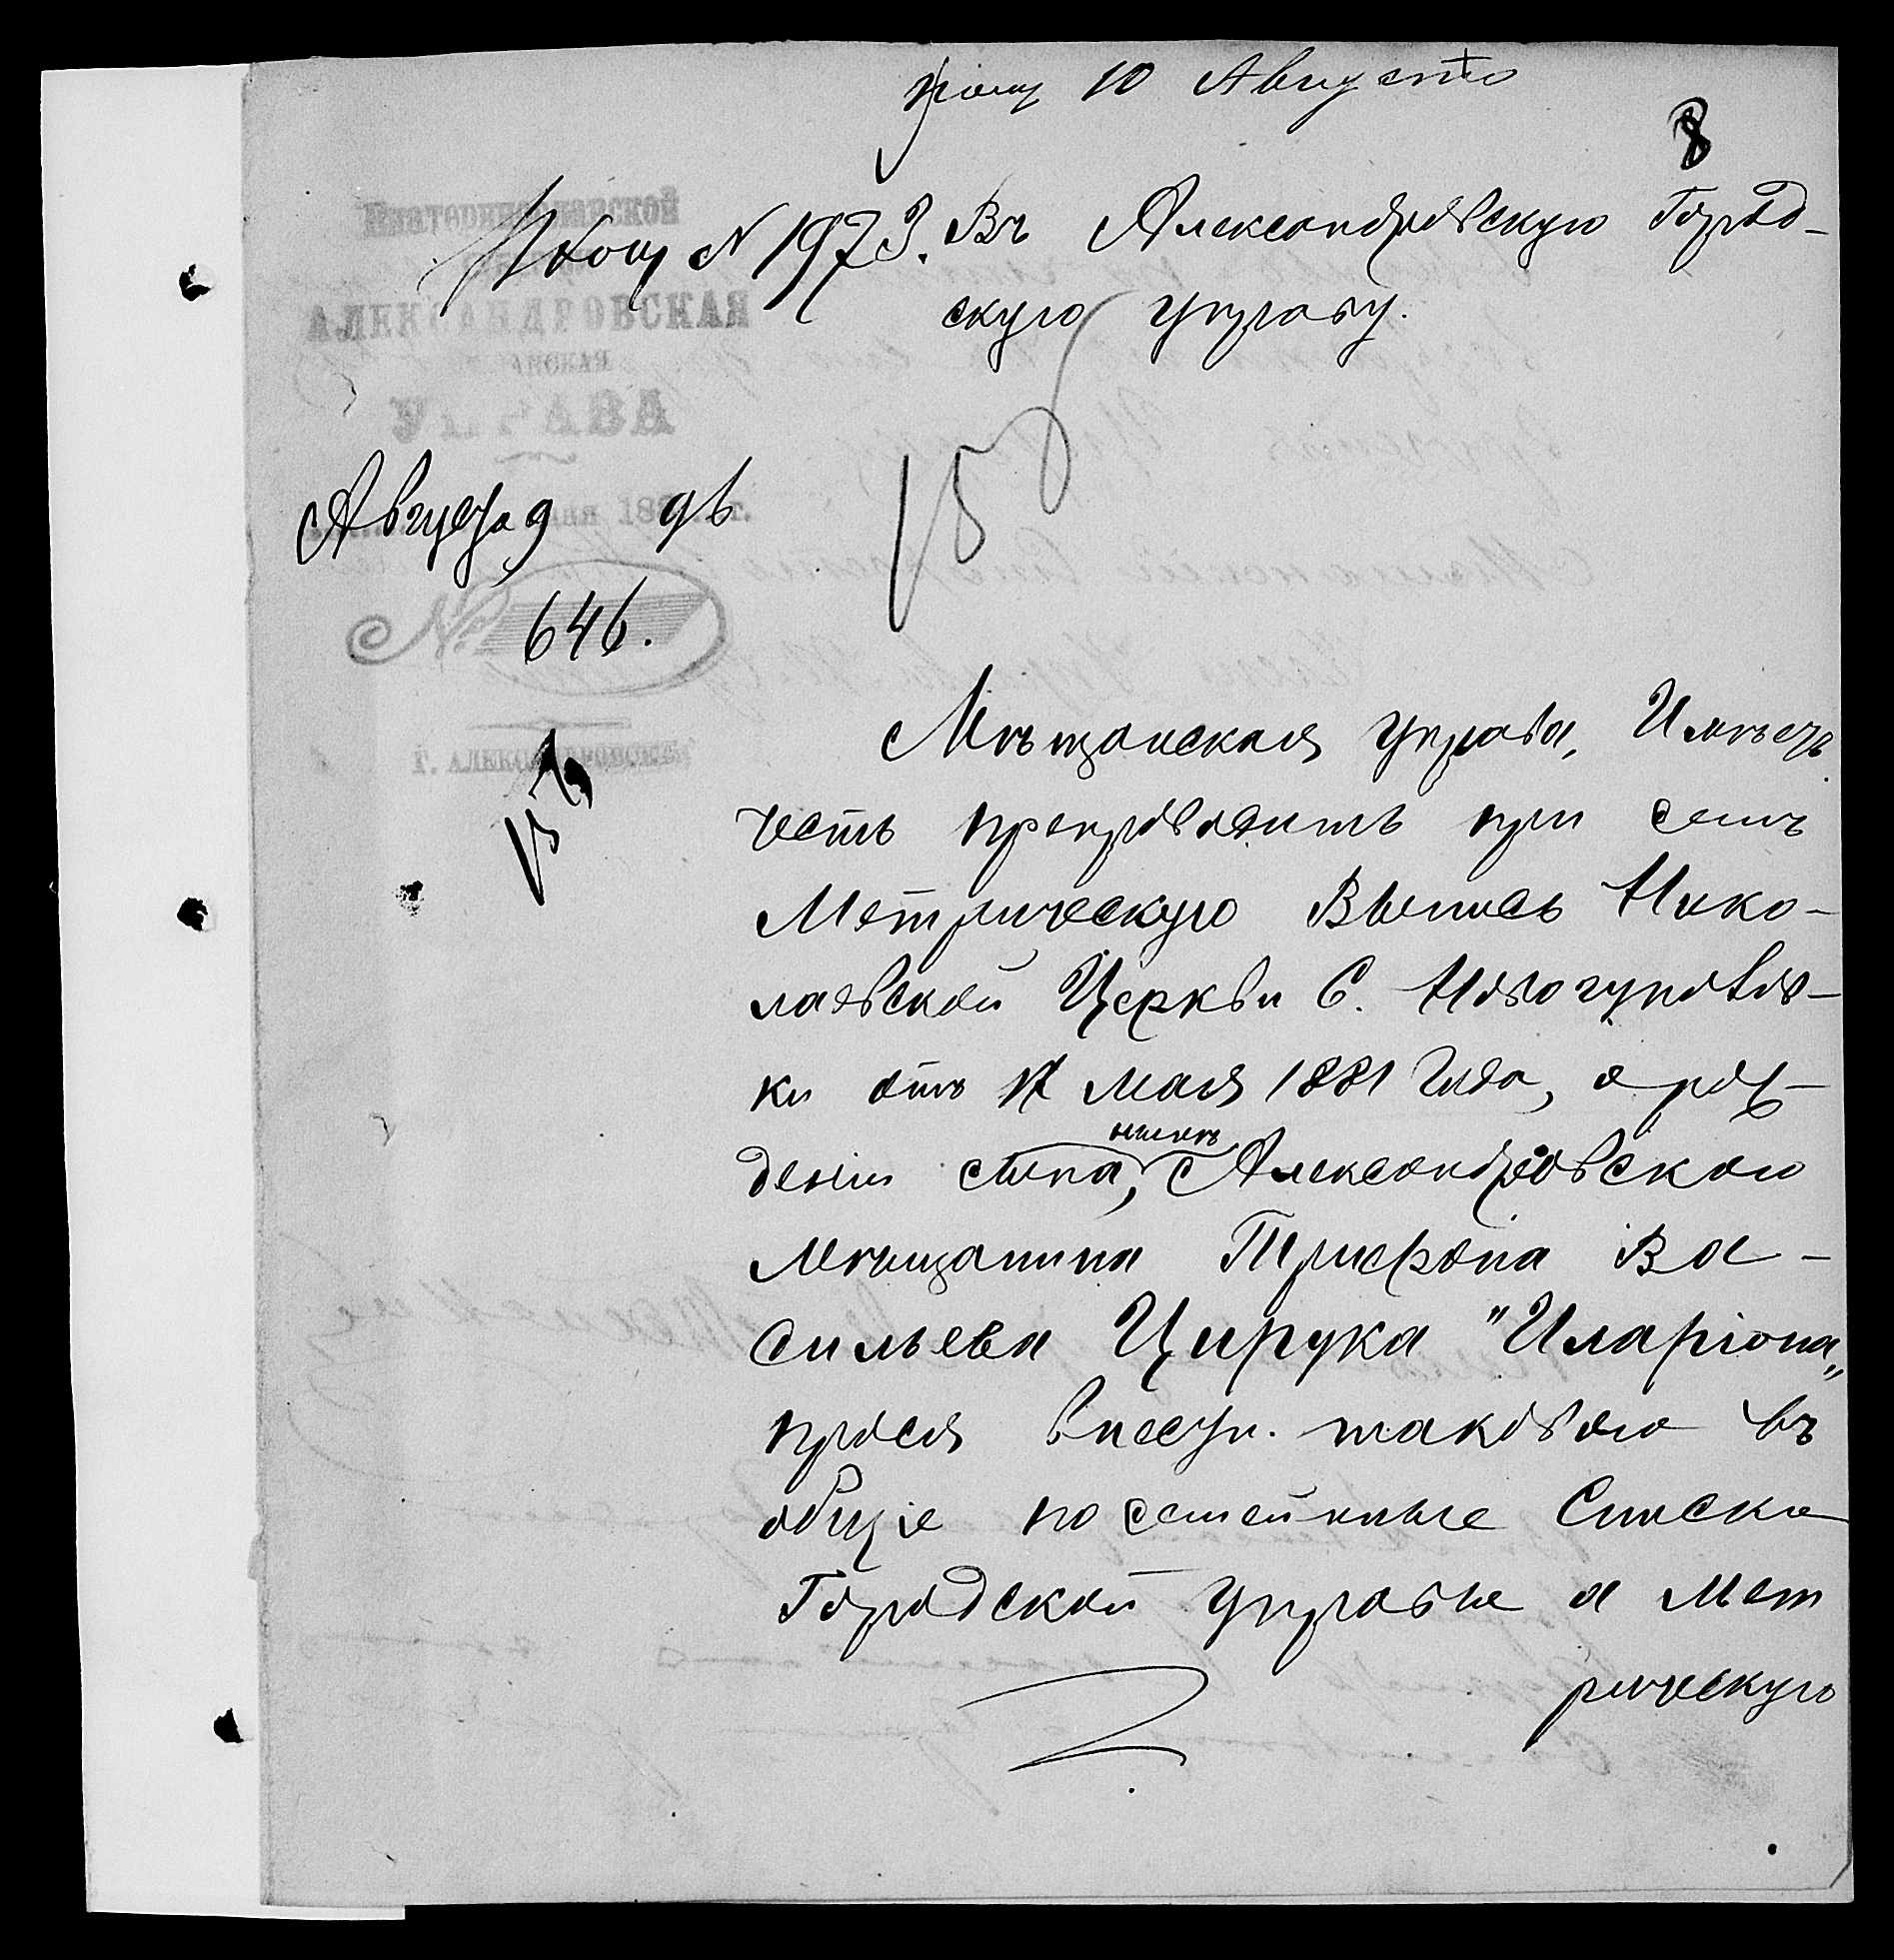 10 Августа
8
Екатеринославской
АЛЕКСАНДРОВСКАЯ
УПРАВА
Августа 9 дня 188 г.
№ 646.
Г. АЛЕКСАНДРОВСКЪ
№ 1973.
Въ Александровскую Город-
скую управу.
15
Мѣщанская управа, Имѣетъ
честь препроводить при семъ
Метрическую Выпись Нико-
лаевской Церкви С. Новогуповов-
ки отъ 17 мая 1881 года, о рож-
деніи сына, Александровского
мѣщанина Трифона Ва-
сильева Цирука "Иларіона„
прося внести таковаго въ
общіе посемейные Списки
Городской управы а Мет
рическую